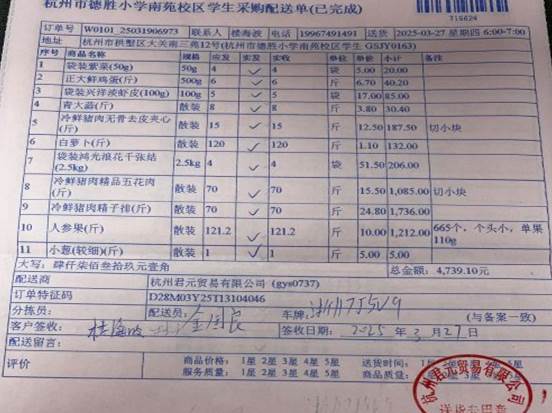 杭州市德胜小学南苑校区学生采购配送单(已完成)
715624
订单号 W0101_25031906973 联系人 楼海波 电话 19967491491 送货 2025-03-27 星期四 6:00-7:00
地址 杭州市拱墅区大关南三苑12号(杭州市德胜小学南苑校区学生 GSJY0163)
序号 商品名称 规格 应发 实发 实收 单位 单价 小计 备注
1 袋装紫菜(50g) 50g 4 ✓ 4 袋 5.00 20.00
2 正大鲜鸡蛋(斤) 500g 6 ✓ 6 斤 6.70 40.20
3 袋装兴祥淡虾皮(100g) 100g 5 ✓ 5 袋 17.00 85.00
4 青大蒜(斤) 散装 8 ✓ 8 斤 3.80 30.40
5 冷鲜猪肉无骨去皮夹心(斤) 散装 15 ✓ 15 斤 12.50 187.50 切小块
6 白萝卜(斤) 散装 120 ✓ 120 斤 1.10 132.00
7 袋装鸿光浪花千张结(2.5kg) 2.5kg 4 ✓ 4 袋 51.50 206.00
8 冷鲜猪肉精品五花肉(斤) 散装 70 ✓ 70 斤 15.50 1,085.00 切小块
9 冷鲜猪肉精子排(斤) 散装 70 ✓ 70 斤 24.80 1,736.00
10 人参果(斤) 散装 121.2 ✓ 121.2 斤 10.00 1,212.00 665个，个头小，单果110g
11 小葱(较细)(斤) 散装 1 ✓ 1 斤 5.00 5.00
大写：肆仟柒佰叁拾玖元壹角 总金额：4,739.10元
配送商 杭州君元贸易有限公司 (gys0737)
订单特征码 D28M03Y25T13104046
分拣员： 配送员： 金国良 车牌： (与备案一致)
客户签收： 楼海波 签收日期： 2025 年 3 月 27 日
配送留言：
评价 商品价格： 1星 2星 3星 4星 5星 送货时间： 1星 2星 3星 4星 5星
服务质量： 1星 2星 3星 4星 5星 商品质量： 1星
杭州君元贸易有限公司
送货专用章